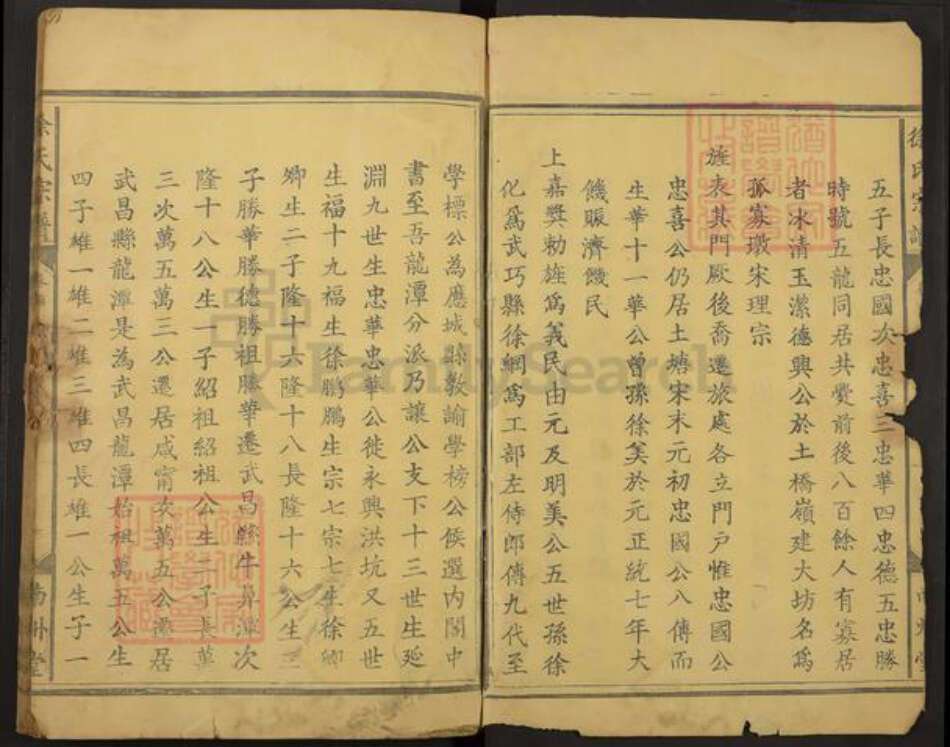 五子長忠國次忠喜三忠華四忠德五忠勝
時號五龍同居共爨前後八百餘人有寡居
者冰清玉潔德興公於土橋嶺建大坊名為
孤寡墩宋理宗
旌表其門厥後喬遷旅處各立門戶惟忠國公
忠喜公仍居土塘宋末元初忠國公八傳而
生華十一華公曾孫徐美於元正統七年大
饑賑濟饑民
上嘉獎勅旌為義民由元及明美公五世孫徐
化為武巧縣徐綱為工部左侍郎傳九代至
學標公為應城縣教諭學榜公候選內閣中
書至吾龍潭分派乃讓公支下十三世生延
淵九世生忠華忠華公徙永興洪坑又五世
生福十九福生徐鵬鵬生宗七宗七生徐卿
卿生二子隆十六隆十八長隆十六公生三
子勝華勝德勝祖勝華遷武昌縣牛鼻潭次
隆十八公生一子紹祖紹祖公生二子長萬
三次萬五萬三公遷居咸甯次萬五公遷居
武昌縣龍潭是為武昌龍潭始祖萬五公生
四子雄一雄二雄三雄四長雄一公生子一
徐氏宗譜
南州堂
FamilySearch